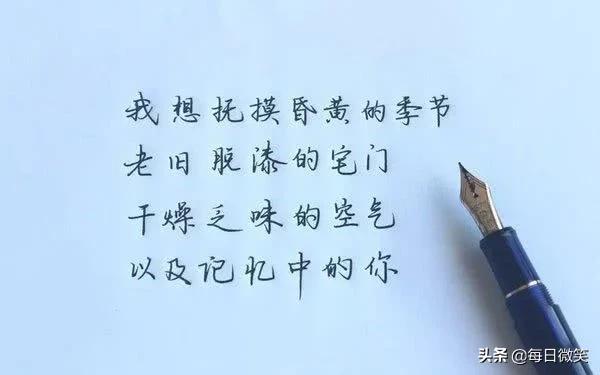 我想抚摸昏黄的季节
老旧脱漆的宅门
干燥乏味的空气
以及记忆中的你
头条 @每日微笑